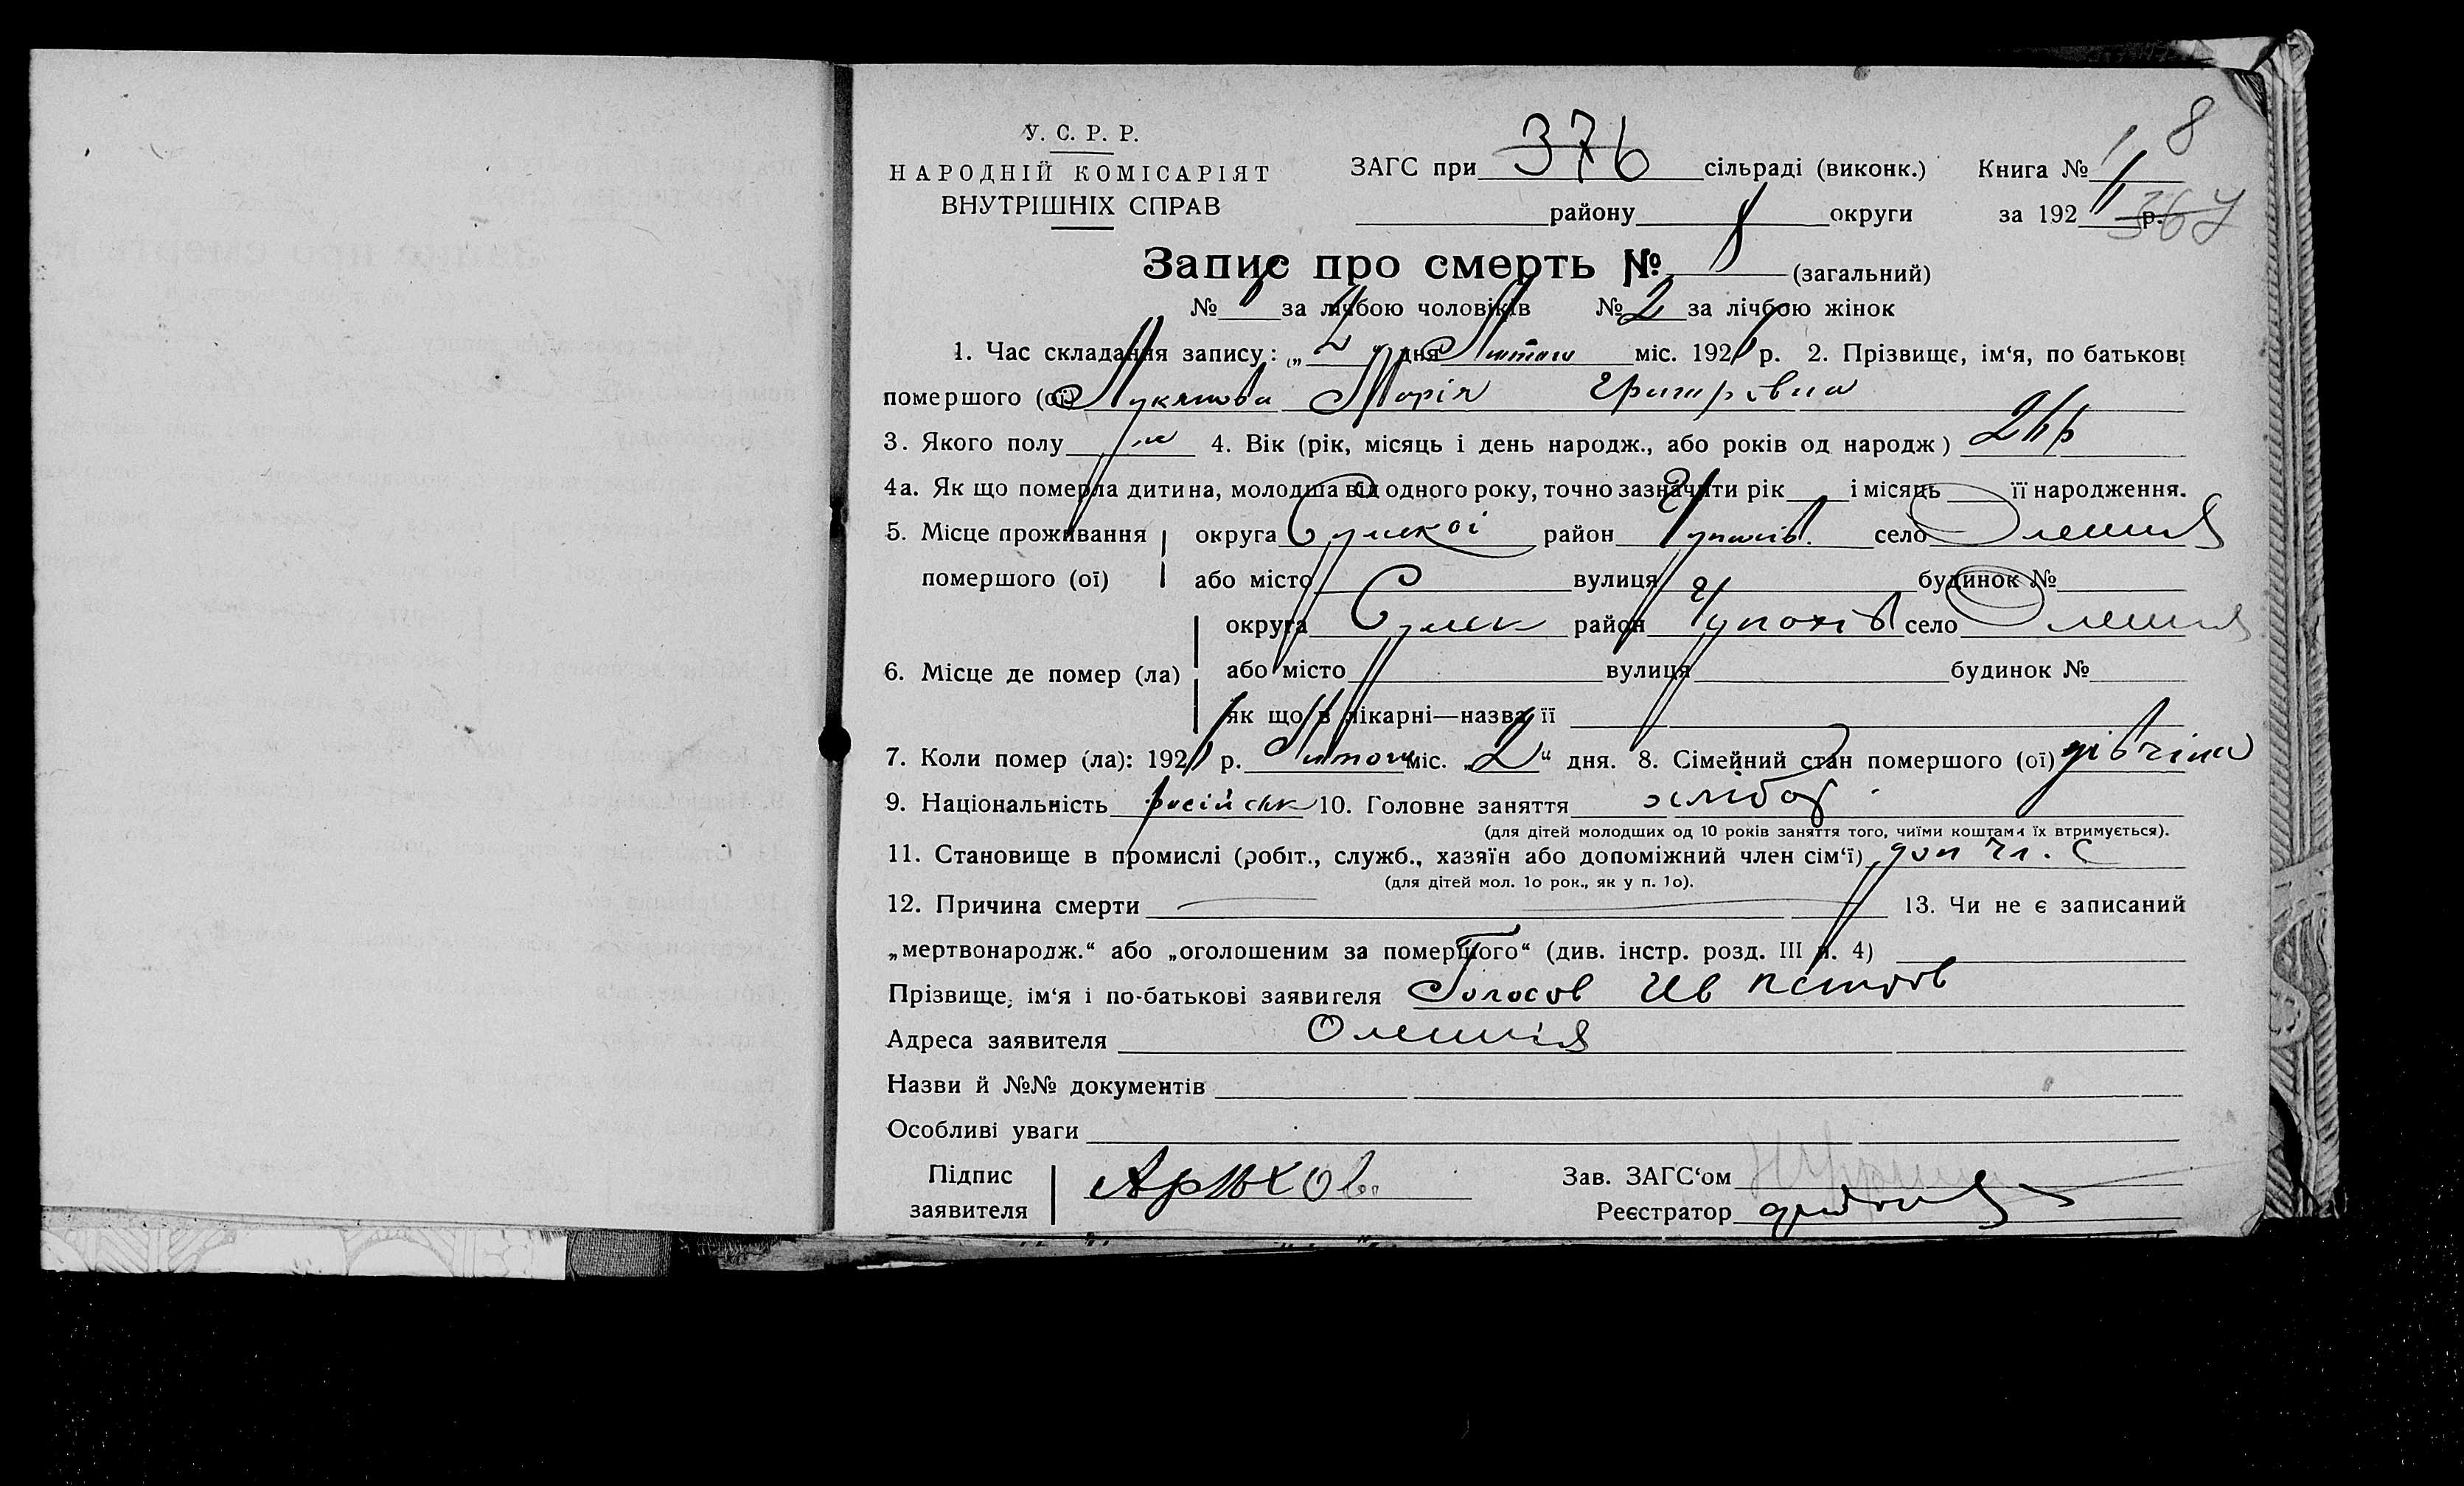 8
У. С. Р. Р.
НАРОДНІЙ КОМІСАРІЯТ
ВНУТРІШНІХ СПРАВ
ЗАГС при 376 сільраді (виконк.) Книга №
району округи за 192 р. 367
Запис про смерть № (загальний)
№ за лічбою чоловіків № 2 за лічбою жінок
1. Час складання запису: „2" дня Лютого міс. 192 р. 2. Прізвище, ім‘я, по батькові
помершого (ої) Марія
3. Якого полу ж 4. Вік (рік, місяць і день народж., або років од народж)
4а. Як що померла дитина, молодша від одного року, точно зазначити рік і місяць її народження.
5. Місце проживання помершого (ої) округа Сумкоі район село
або місто вулиця будинок №
6. Місце де помер (ла) округа Сумск район село
або місто вулиця будинок №
як що в лікарні—назва її
7. Коли помер (ла): 192 р. Лютого міс. „2" дня. 8. Сімейний стан помершого (ої) дівчина
9. Національність російськ 10. Головне заняття хлібор
(для дітей молодших од 10 років заняття того, чиїми коштами їх втримується).
11. Становище в промислі (робіт., служб., хазяїн або допоміжний член сім‘ї) доп чл. С
(для дітей мол. 1о рок., як у п. 1о).
12. Причина смерти 13. Чи не є записаний
„мертвонародж.“ або „оголошеним за помершого“ (див. інстр. розд. III п. 4)
Прізвище, ім‘я і по-батькові заявителя Голосов Ив
Адреса заявителя
Назви й №№ документів
Особливі уваги
Підпис заявителя Зав. ЗАГС‘ом
Реєстратор